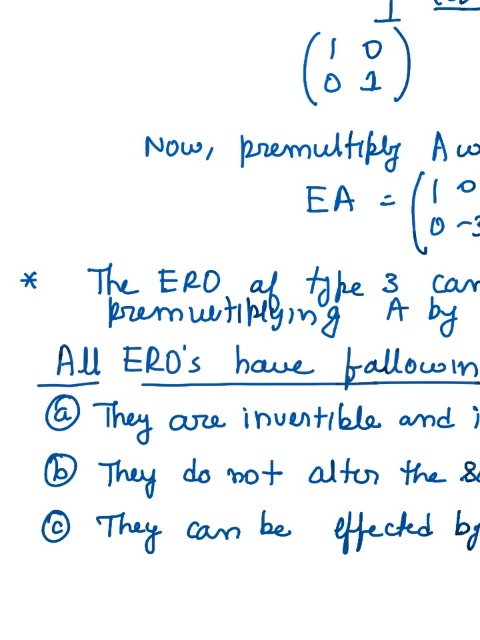 I
( 1 0
0 1 )
Now, premultiply A w
EA = ( 1 0
0 -3
* The ERO of type 3 can
premultiplying A by
All ERO's have followin
(a) They are invertible and i
(b) They do not alter the s
(c) They can be effected by